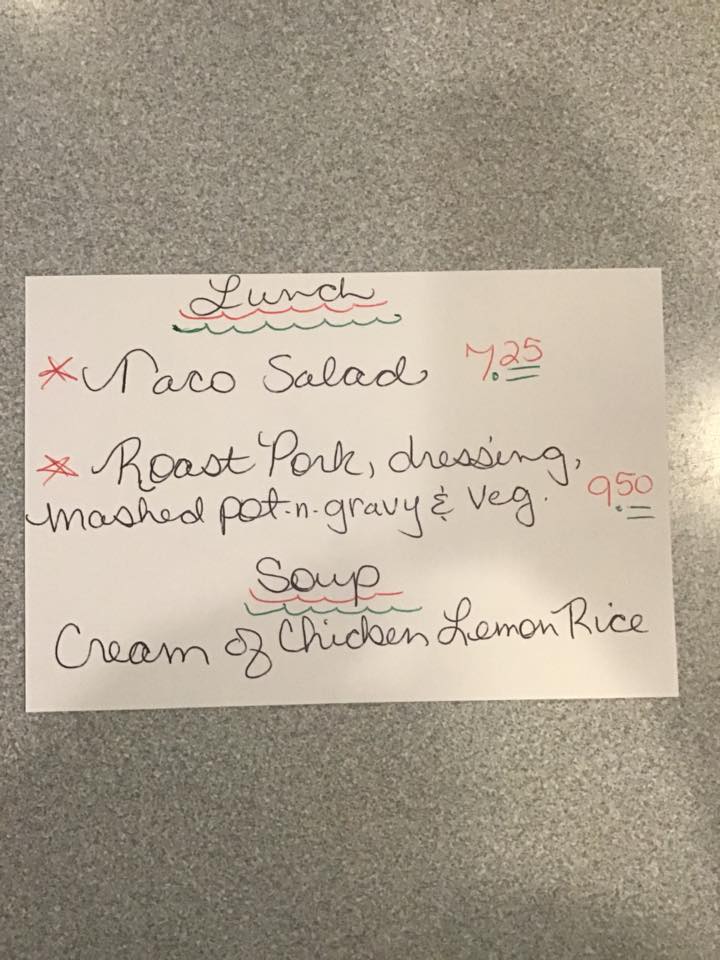 Lunch
* Taco Salad 7.25
* Roast Pork, dressing,
mashed pot-n-gravy & veg. 9.50
Soup
Cream of Chicken Lemon Rice